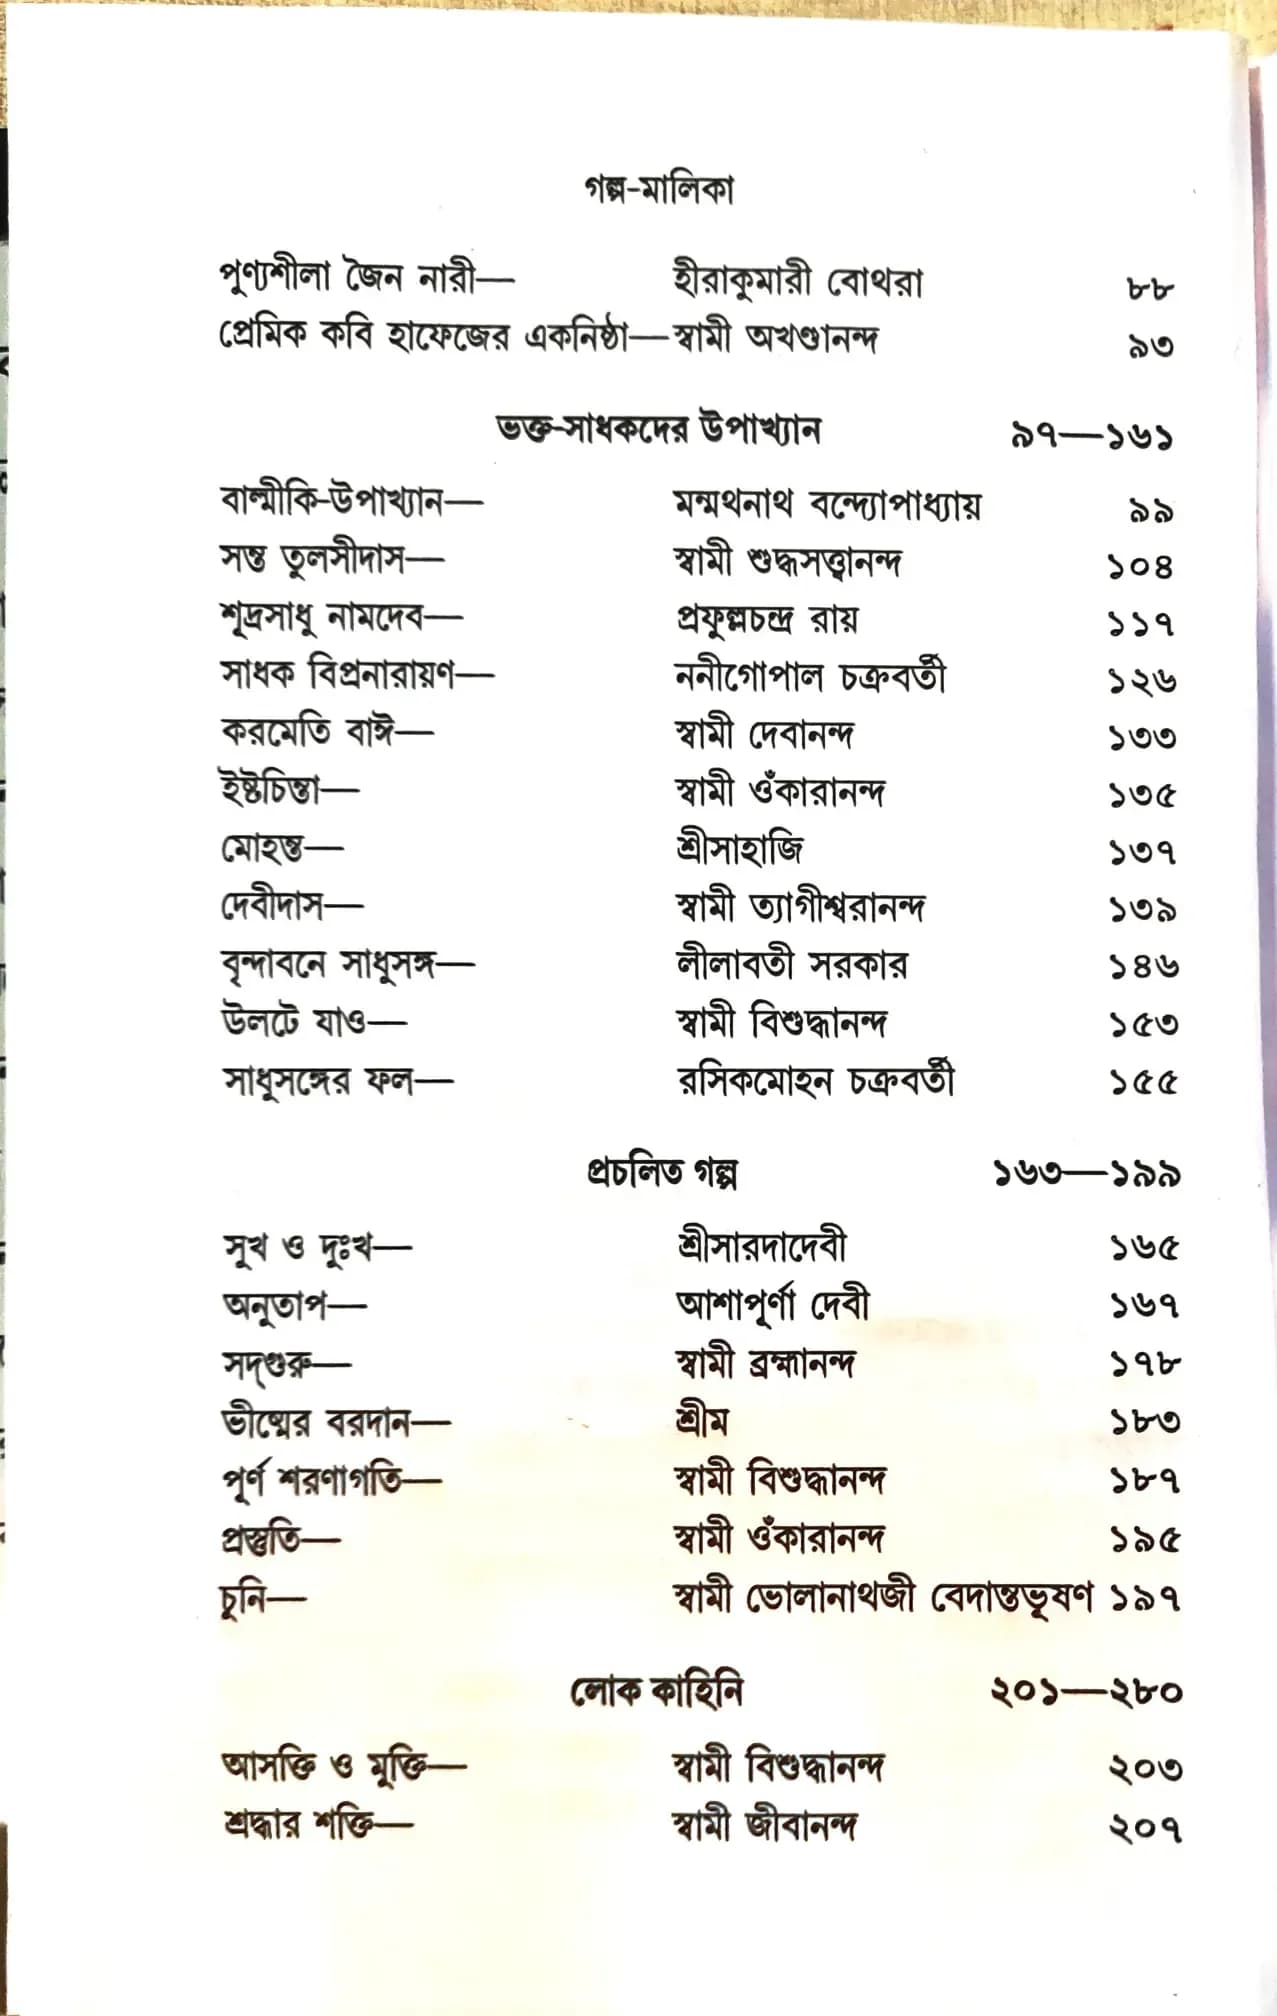 গল্প-মালিকা
পুণ্যশীলা জৈন নারী— হীরাকুমারী বোথরা ৮৮
প্রেমিক কবি হাফেজের একনিষ্ঠা— স্বামী অখণ্ডানন্দ ৯৩
ভক্ত-সাধকদের উপাখ্যান ৯৭—১৬১
বাল্মীকি-উপাখ্যান— মন্মথনাথ বন্দ্যোপাধ্যায় ৯৯
সন্ত তুলসীদাস— স্বামী শুদ্ধসত্ত্বানন্দ ১০৪
শূদ্রসাধু নামদেব— প্রফুল্লচন্দ্র রায় ১১৭
সাধক বিপ্রনারায়ণ— ননীগোপাল চক্রবর্তী ১২৬
করমেতি বাঈ— স্বামী দেবানন্দ ১৩৩
ইষ্টচিন্তা— স্বামী ওঁকারানন্দ ১৩৫
মোহন্ত— শ্রীসাহাজি ১৩৭
দেবীদাস— স্বামী ত্যাগীশ্বরানন্দ ১৩৯
বৃন্দাবনে সাধুসঙ্গ— লীলাবতী সরকার ১৪৬
উলটে যাও— স্বামী বিশুদ্ধানন্দ ১৫৩
সাধুসঙ্গের ফল— রসিকমোহন চক্রবর্তী ১৫৫
প্রচলিত গল্প ১৬৩—১৯৯
সুখ ও দুঃখ— শ্রীসারদাদেবী ১৬৫
অনুতাপ— আশাপূর্ণা দেবী ১৬৭
সদ্‌গুরু— স্বামী ব্রহ্মানন্দ ১৭৮
ভীষ্মের বরদান— শ্রীম ১৮৩
পূর্ণ শরণাগতি— স্বামী বিশুদ্ধানন্দ ১৮৭
প্রস্তুতি— স্বামী ওঁকারানন্দ ১৯৫
চুনি— স্বামী ভোলানাথজী বেদান্তভূষণ ১৯৭
লোক কাহিনি ২০১—২৮০
আসক্তি ও মুক্তি— স্বামী বিশুদ্ধানন্দ ২০৩
শ্রদ্ধার শক্তি— স্বামী জীবানন্দ ২০৭